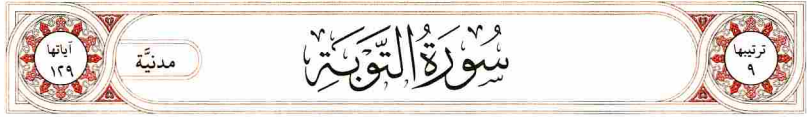 ترتيبها
٩
سُورَةُ التَّوْبَةِ
مدنيَّة
آياتها
١٢٩